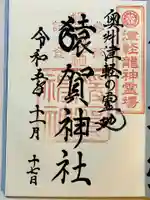 奥州津軽の霊地
津軽龍神霊場
猿賀神社
令和五年十一月十七日